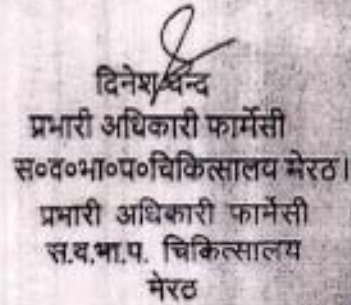 दिनेश चन्द
प्रभारी अधिकारी फार्मेसी
स०व०भा०प०चिकित्सालय मेरठ।
प्रभारी अधिकारी फार्मेसी
स.व.भा.प. चिकित्सालय
मेरठ